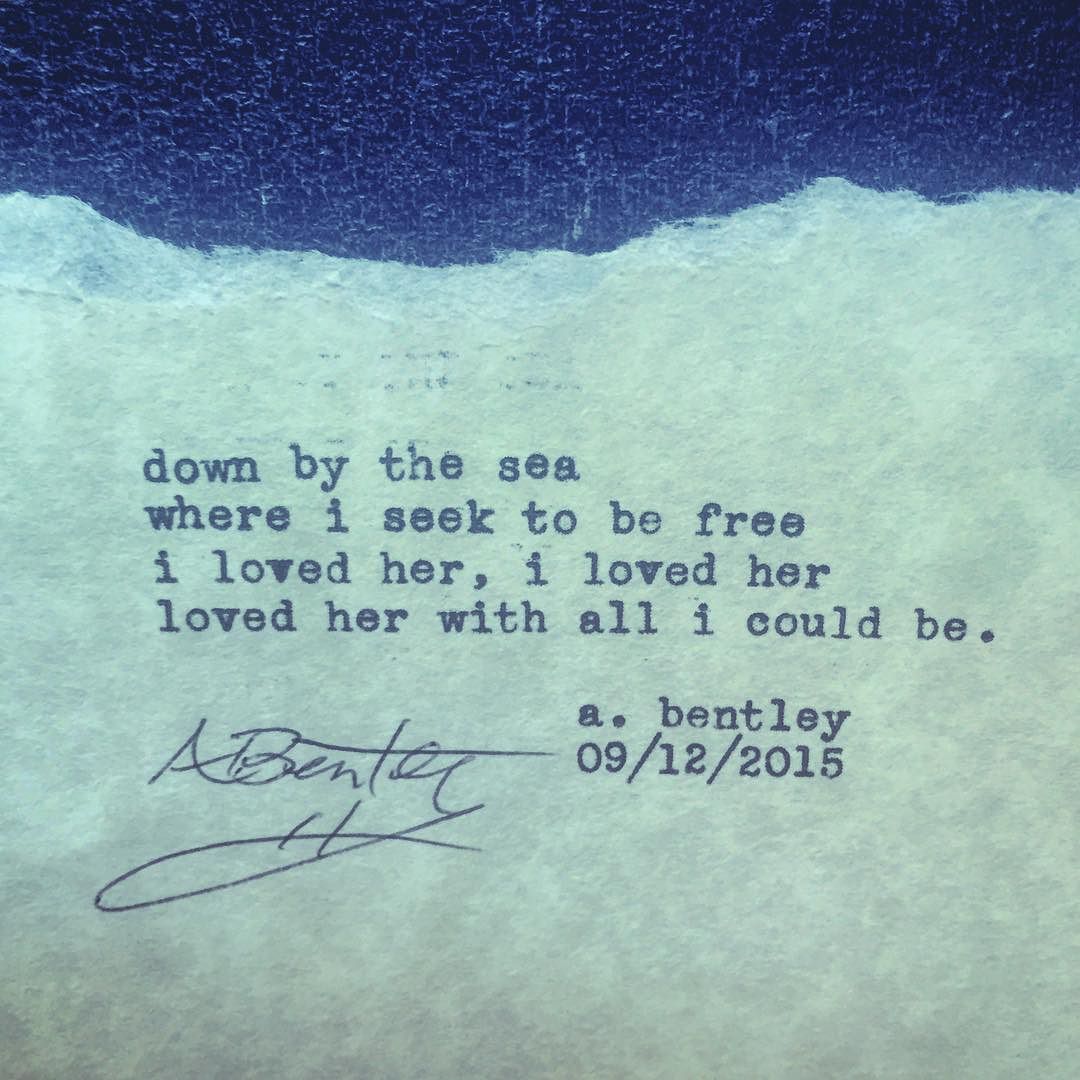 down by the sea
where i seek to be free
i loved her, i loved her
loved her with all i could be.
a. bentley
09/12/2015
ABentley